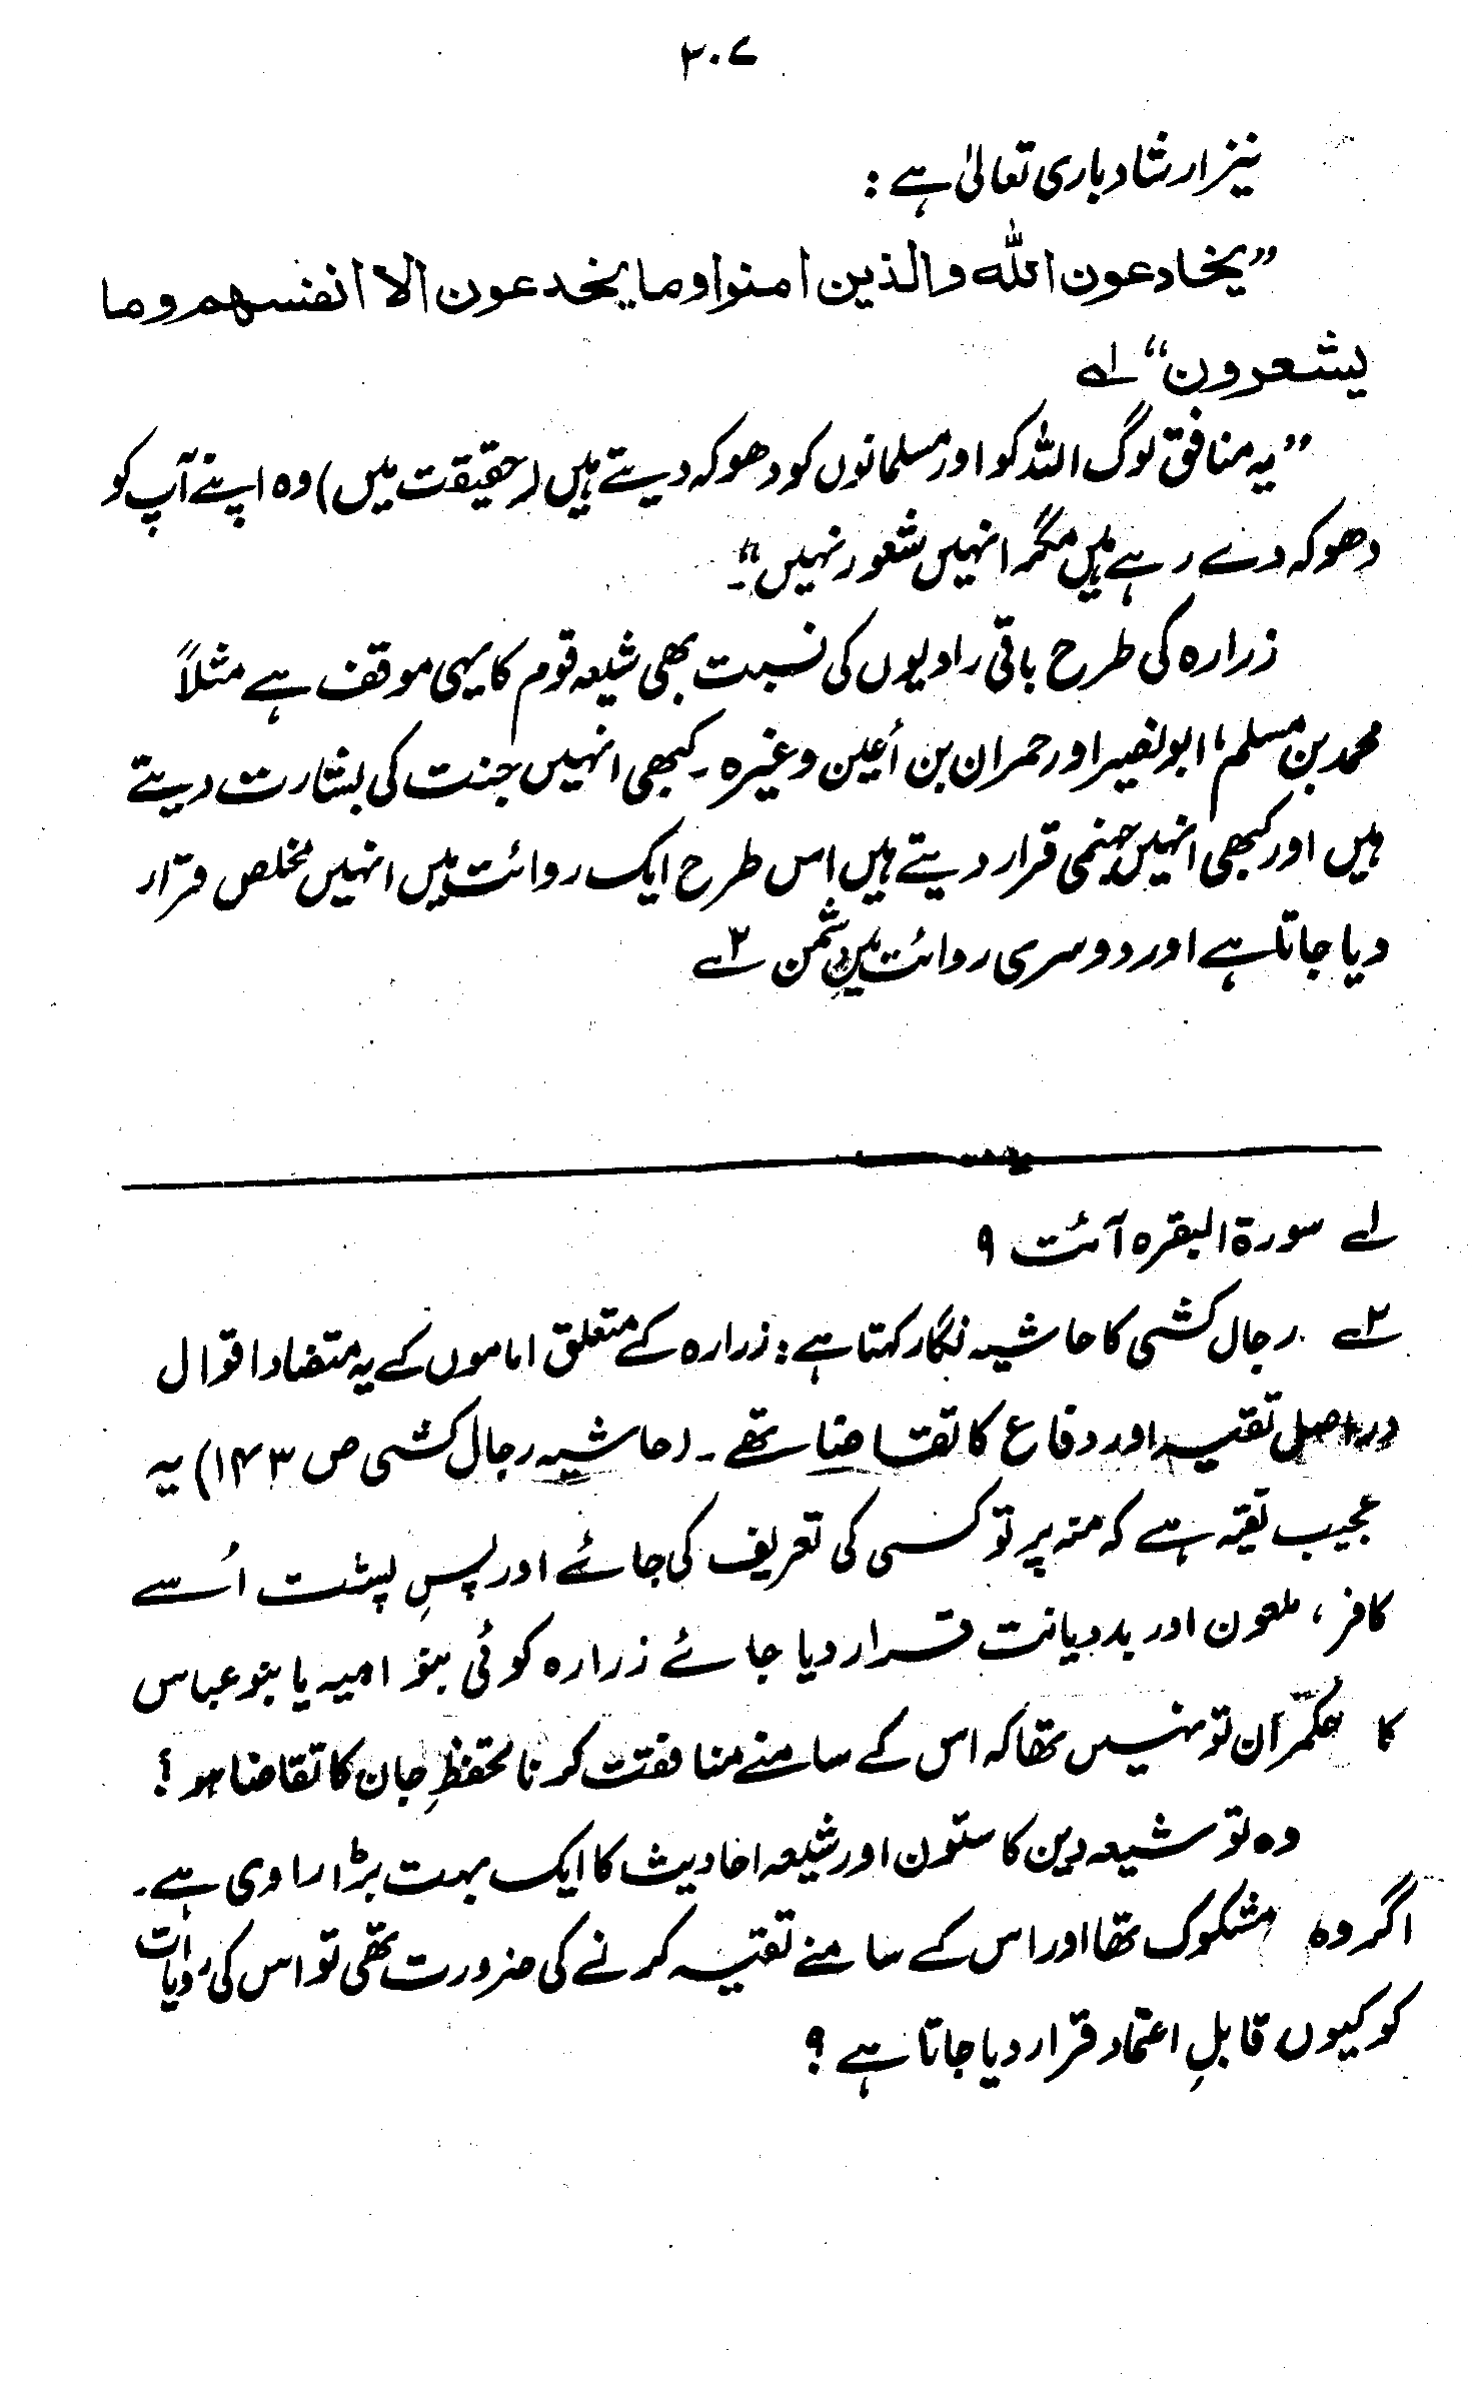 ۲۰۷
نیز ارشاد باری تعالیٰ ہے :
”یخادعون اللہ والذین امنوا وما یخدعون الا انفسھم وما
یشعرون“ ۱ے
”یہ منافق لوگ اللہ کو اور مسلمانوں کو دھوکہ دیتے ہیں (حقیقت میں) وہ اپنے آپ کو
دھوکہ دے رہے ہیں مگر انہیں شعور نہیں“۔
زرارہ کی طرح باقی راویوں کی نسبت بھی شیعہ قوم کا یہی موقف ہے مثلاً
محمد بن مسلم، ابو بصیر اور حمران بن أعین وغیرہ ۔ کبھی انہیں جنت کی بشارت دیتے
ہیں اور کبھی انہیں جہنمی قرار دیتے ہیں اس طرح ایک روائت میں انہیں مخلص قرار
دیا جاتا ہے اور دوسری روائت میں دشمن ۲ے
۱ے سورۃ البقرہ آئت ۹
۲ے رجال کشی کا حاشیہ نگار کہتا ہے : زرارہ کے متعلق اماموں کے یہ متضاد اقوال
در اصل تقیہ اور دفاع کا تقاضا تھے ۔ (حاشیہ رجال کشی ص ۱۴۳) یہ
عجیب تقیہ ہے کہ منہ پر تو کسی کی تعریف کی جائے اور پسِ پشت اُسے
کافر ، ملعون اور بددیانت قرار دیا جائے زرارہ کوئی بنو امیہ یا بنو عباس
کا حکمران تو نہیں تھا کہ اس کے سامنے منافقت کرنا تحفظِ جان کا تقاضا ہو ؟
وہ تو شیعہ دین کا ستون اور شیعہ احادیث کا ایک بہت بڑا راوی ہے ۔
اگر وہ مشکوک تھا اور اس کے سامنے تقیہ کرنے کی ضرورت تھی تو اس کی روایات
کو کیوں قابلِ اعتماد قرار دیا جاتا ہے ؟